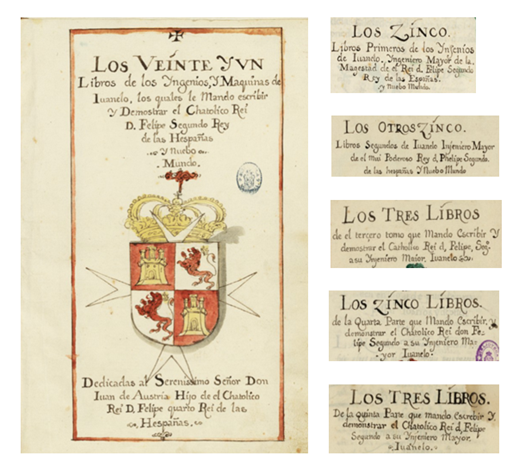 LOS VEINTE Y UN
Libros de los Yngenios, Y Maquinas de
Iuanelo, los quales le Mando escribir
Y Demostrar el Chatolico Rei
D. Felipe Segundo Rey
de las Hespañas
Y Nuebo
Mundo.
Dedicadas al Serenissimo Señor Don
Iuan de Austria Hijo de el Chatolico
Rei D. Felipe quarto Rei de las
Hespañas.
LOS ZINCO.
Libros Primeros de los Ynsenios
de Iuanelo, Ingeniero Mayor de la
Magestad de el Rei d. Felipe Segundo
Rey de las Españas.
y Nuebo Mundo.
LOS OTROS ZINCO.
Libros Segundos de Iuanelo Injeniero Mayor
de el mui Poderoso Rey d. Phelipe Segundo.
de las hespañas Y Nuebo Mundo
LOS TRES LIBROS
de el tergero tomo que Mando Escribir Y
demostrar el Catholico Rei d, Felipe, Seg.
a su Yngeniero Maior, Iuanelo
LOS ZINCO LIBROS.
de la Quarta Parte que Mando Escribir, y
demonstrar el Chatolico Rei don Fe-
lipe Segundo a su Yngeniero Ma-
yor Iuanelo.
LOS TRES LIBROS.
De la quinta Parte que mando Escrebir Y
demonstrar el Chatolico Rei d, Felipe
Segundo a su Yngeniero Mayor.
Iuanelo.